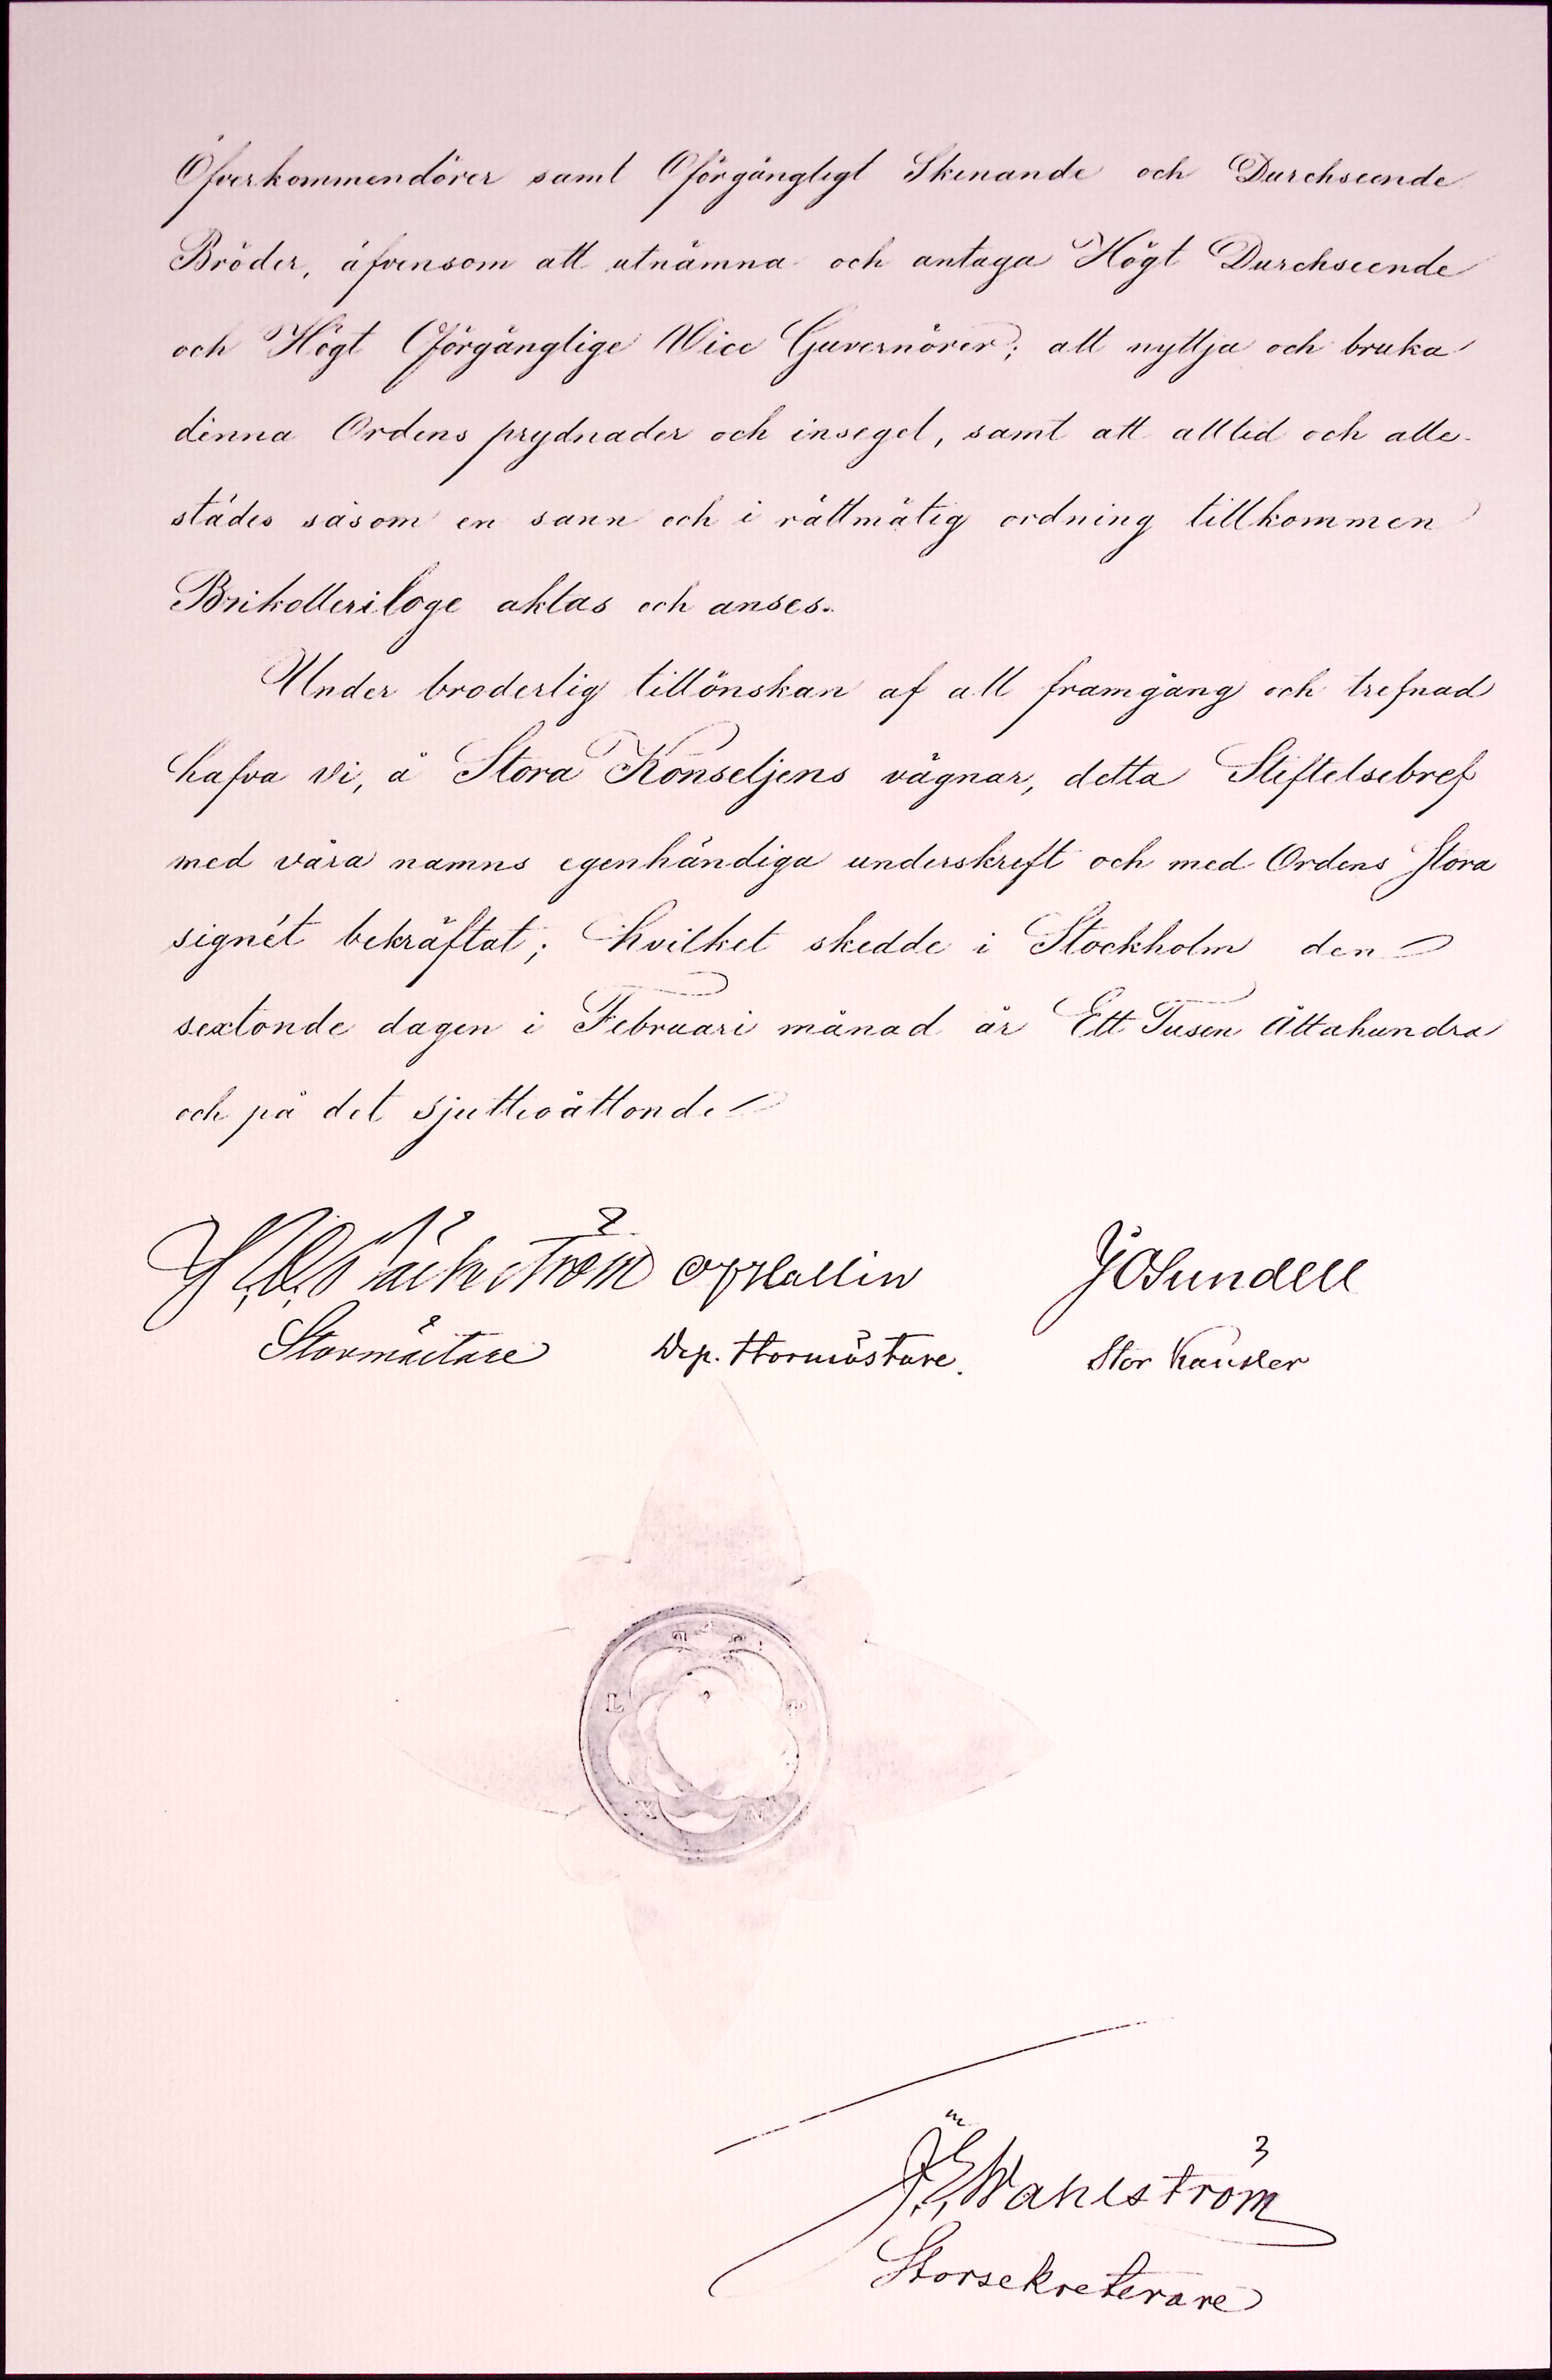 Öfverkommendörer samt Oförgängligt Skinande och Durchseende
Bröder, äfvensom att utnämna och antaga Högt Durchseende
och Högt Oförgänglige Vice Guvernörer; att nyttja och bruka
denna Ordens prydnader och insegel, samt att alltid och alle-
städes såsom en sann och i rättmätig ordning tillkommen
Brikolleriloge aktas och anses.
Under broderlig tillönskan af all framgång och trefnad
hafva vi, å Stora Konseljens vägnar, detta Stiftelsebref
med våra namns egenhändiga underskrift och med Ordens Stora
signét bekräftat; hvilket skedde i Stockholm den
sextonde dagen i Februari månad år Ett Tusen Åttahundra
och på det sjuttioåttonde
Hallin J O Sundell
Stormästare Dep. Stormästare. Stor Kansler
J. E. Wahlström
Storsekreterare